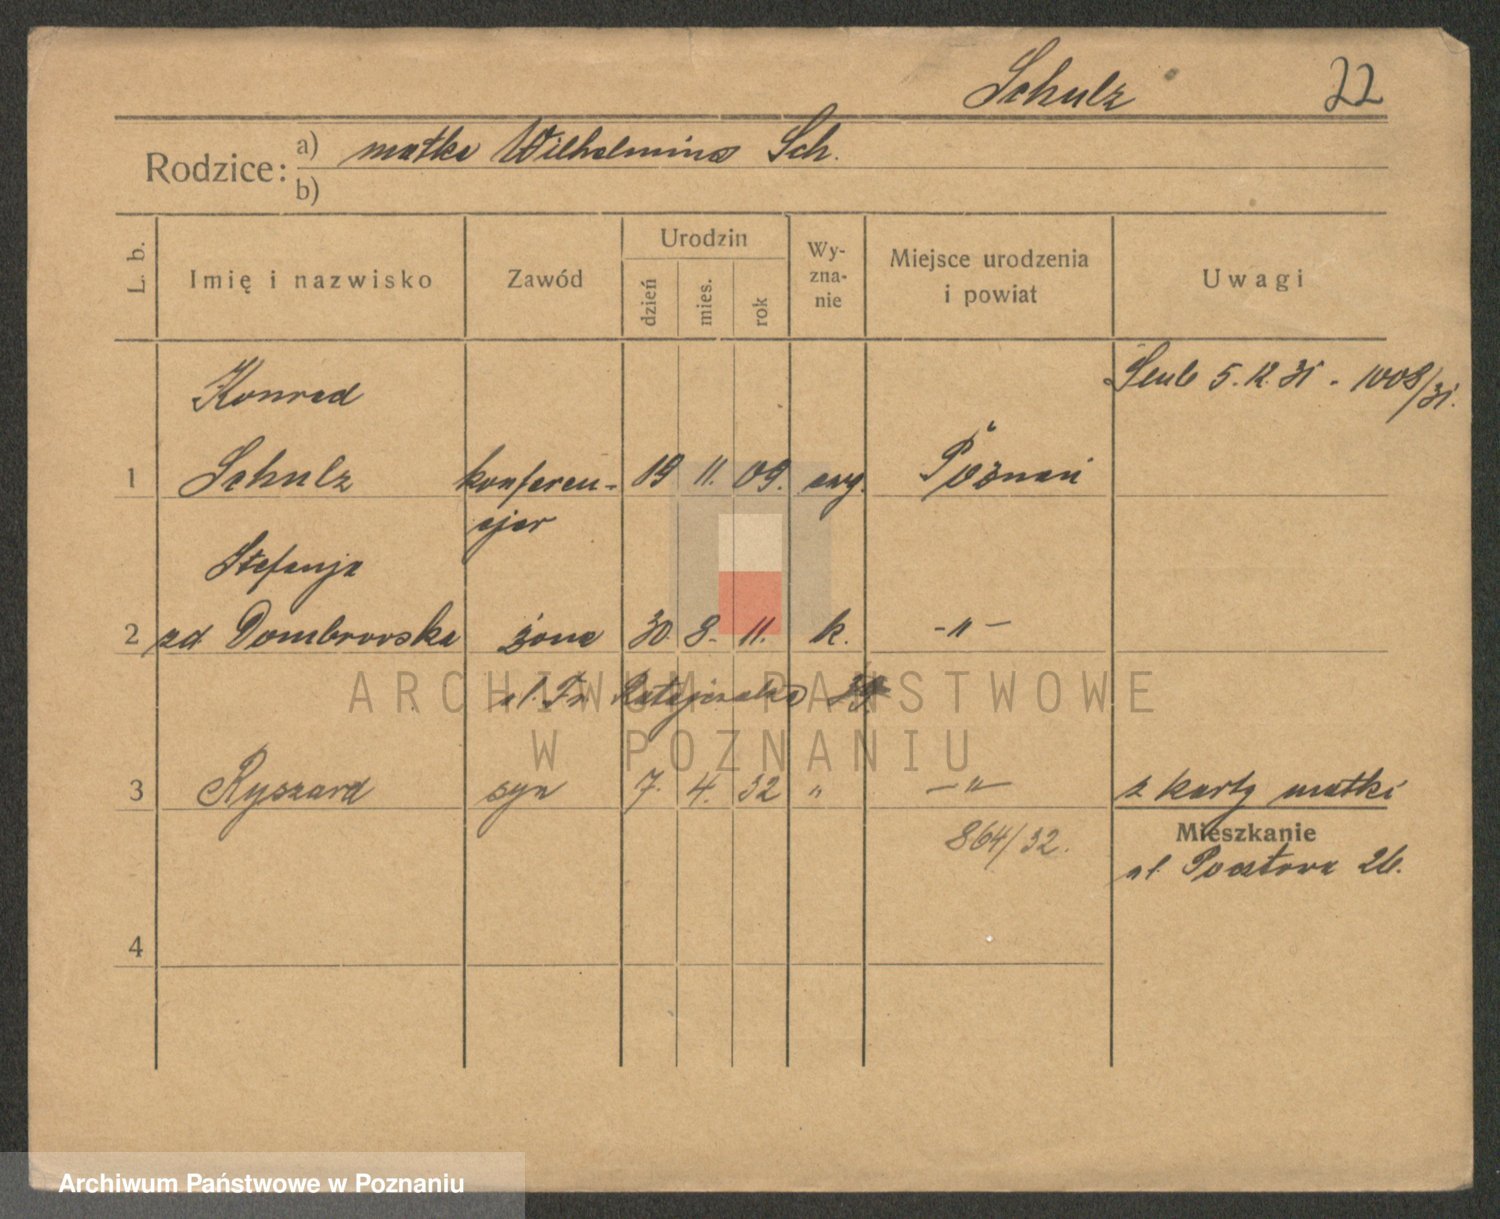 Schulz 22
Rodzice: a) matka Wilhelmina Sch.
b)
L. b. Imię i nazwisko Zawód Urodzin dzień mies. rok Wy-zna-nie Miejsce urodzenia i powiat Uwagi
Konrad Ślub 5.12.31 - 1008/31.
1 Schulz konferen- 19 11. 09. ewg. Poznań
cjer
Stefanja
2 zd. Dombrowska żona 30. 8. 11. k. -"-
ul. Fr. Ratajczaka
ARCHIWUM PAŃSTWOWE
W POZNANIU
3 Ryszard syn 7. 4. 32 " -"- z karty matki
864/32. Mieszkanie
ul. Pocztowa 26.
4
Archiwum Państwowe w Poznaniu